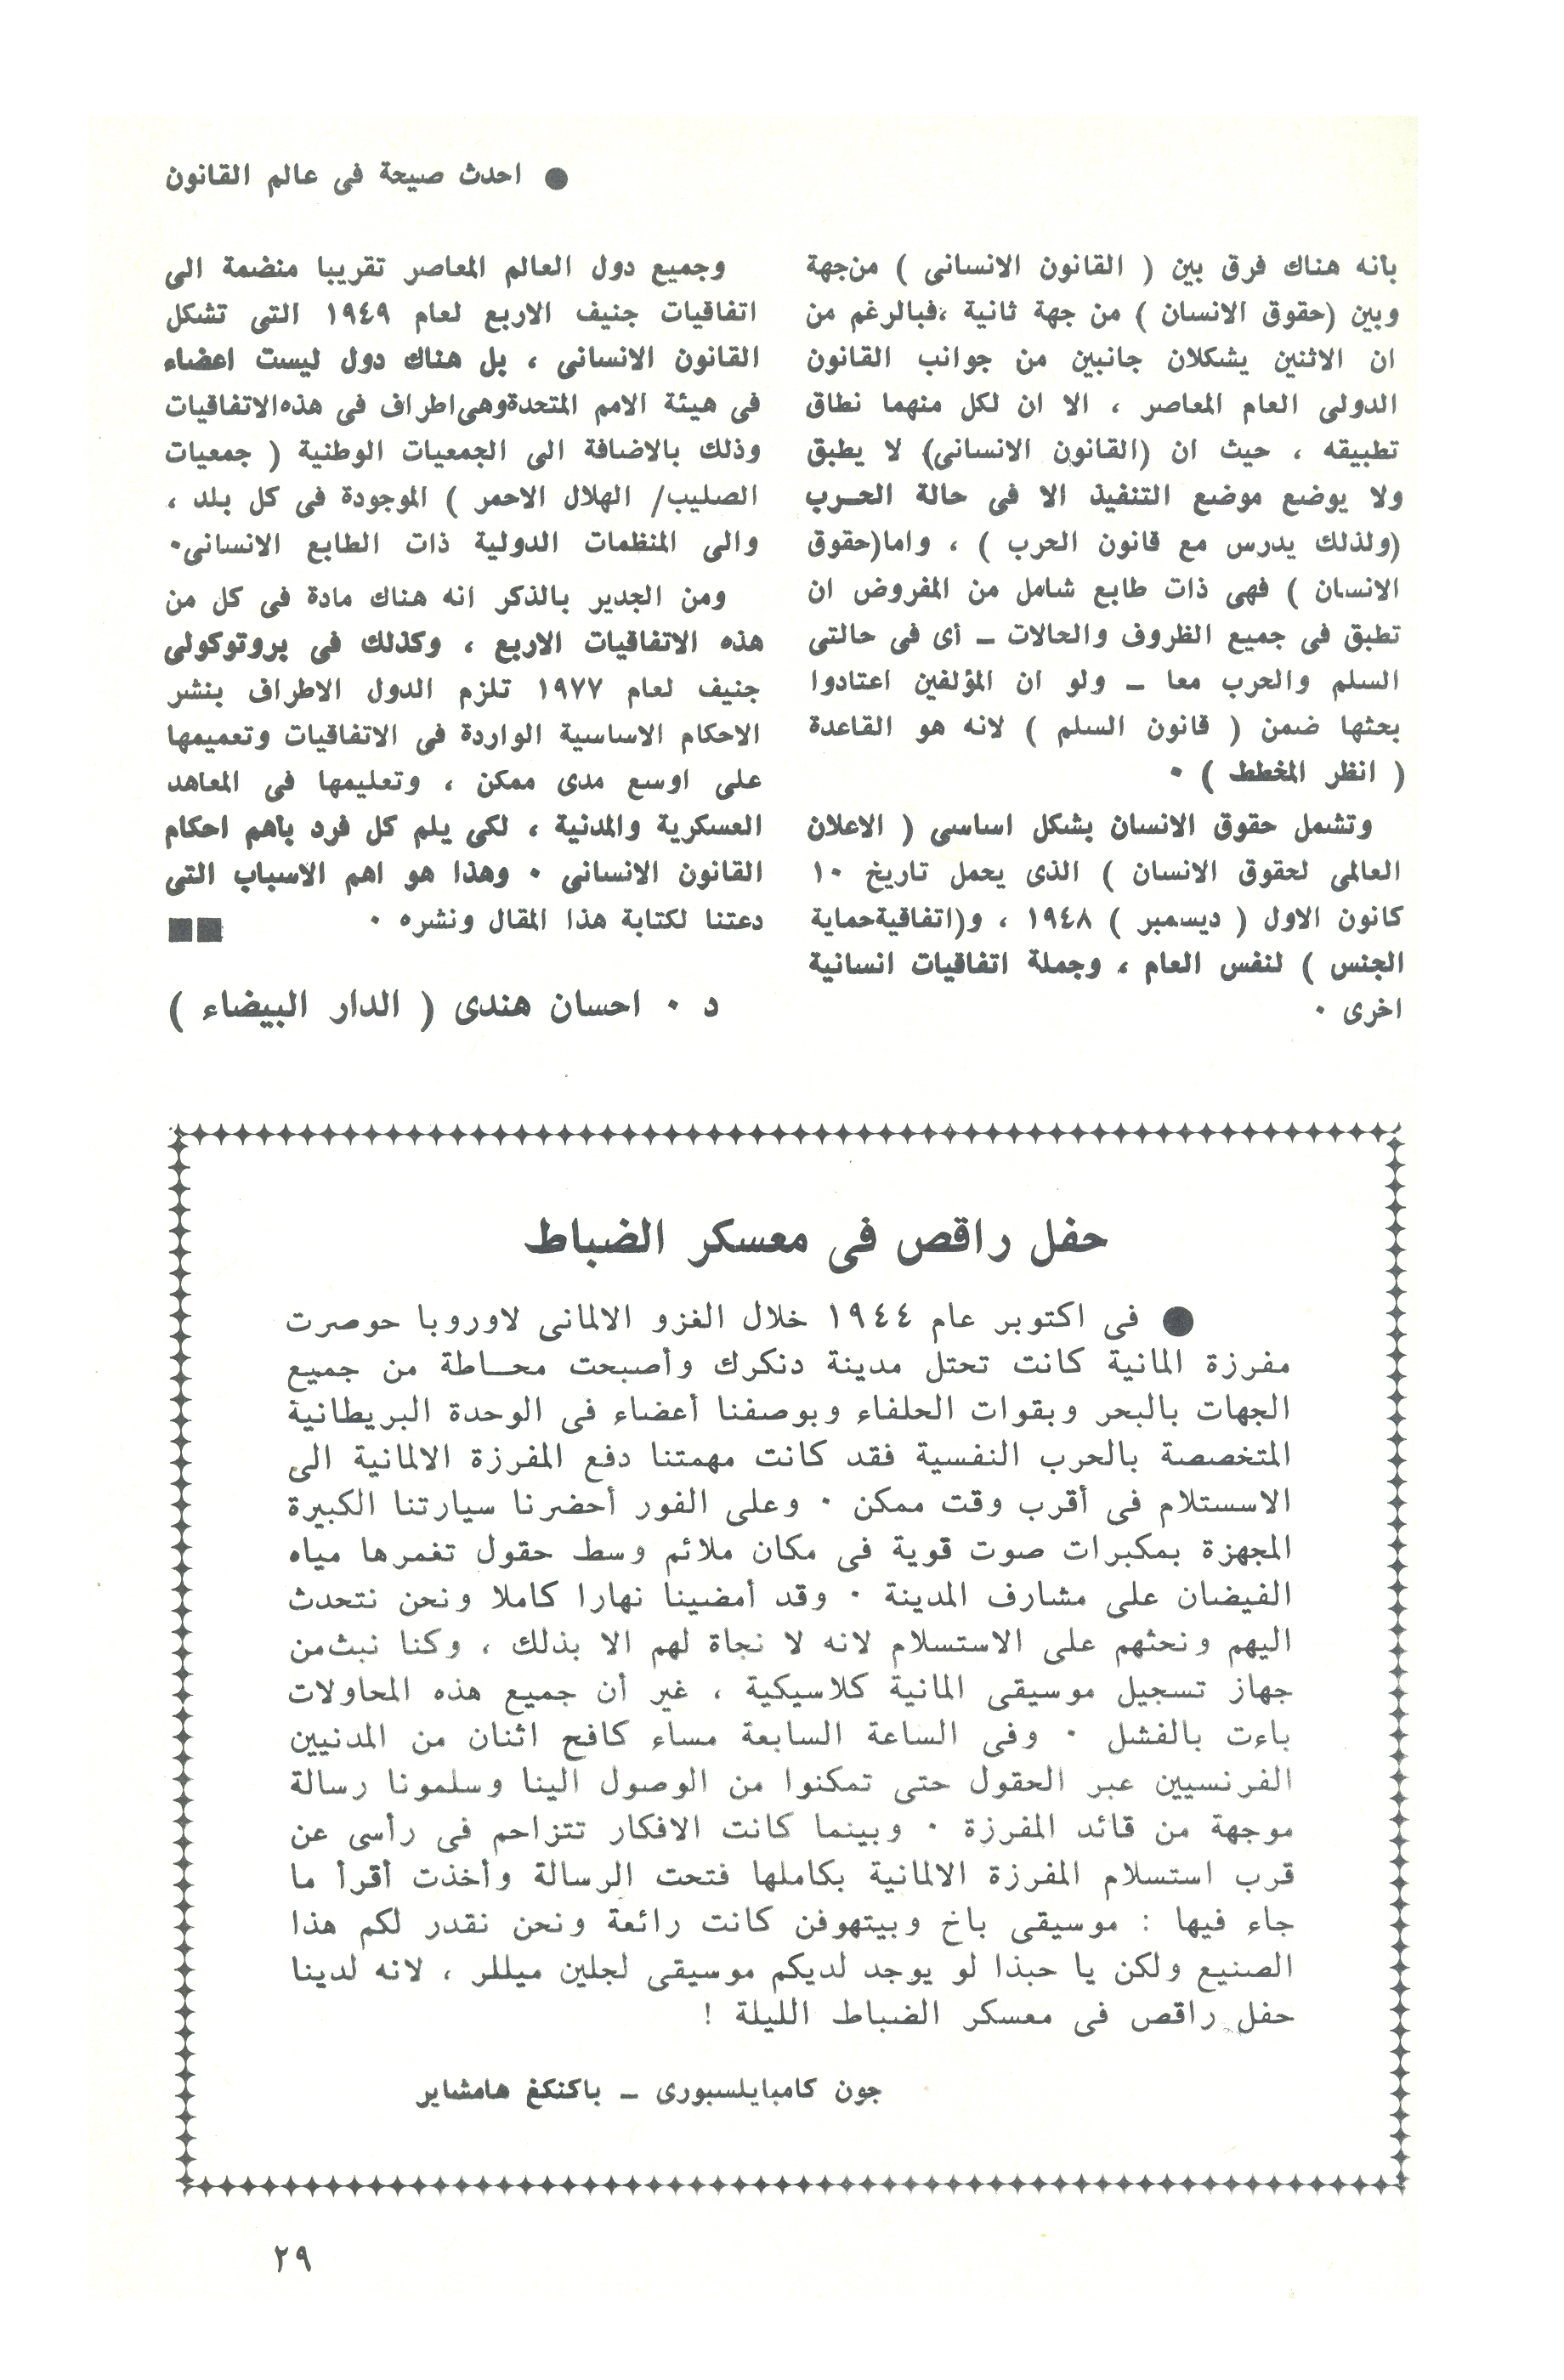 ● احدث صيحة فى عالم القانون
بأنه هناك فرق بين ( القانون الانسانى ) من جهة
وبين (حقوق الانسان ) من جهة ثانية ،فبالرغم من
ان الاثنين يشكلان جانبين من جوانب القانون
الدولى العام المعاصر ، الا ان لكل منهما نطاق
تطبيقه ، حيث ان (القانون الانسانى) لا يطبق
ولا يوضع موضع التنفيذ الا فى حالة الحـرب
(ولذلك يدرس مع قانون الحرب ) ، واما(حقوق
الانسان ) فهى ذات طابع شامل من المفروض ان
تطبق فى جميع الظروف والحالات ــ أى فى حالتى
السلم والحرب معا ــ ولو ان المؤلفين اعتادوا
بحثها ضمن ( قانون السلم ) لانه هو القاعدة
( انظر المخطط ) ٠
وتشمل حقوق الانسان بشكل اساسى ( الاعلان
العالمى لحقوق الانسان ) الذى يحمل تاريخ ١٠
كانون الاول ( ديسمبر ) ١٩٤٨ ، و(اتفاقية حماية
الجنس ) لنفس العام ، وجملة اتفاقيات انسانية
اخرى ٠
وجميع دول العالم المعاصر تقريبا منضمة الى
اتفاقيات جنيف الاربع لعام ١٩٤٩ التى تشكل
القانون الانسانى ، بل هناك دول ليست اعضاء
فى هيئة الامم المتحدة وهى اطراف فى هذه الاتفاقيات
وذلك بالاضافة الى الجمعيات الوطنية ( جمعيات
الصليب/ الهلال الاحمر ) الموجودة فى كل بلد ،
والى المنظمات الدولية ذات الطابع الانسانى٠
ومن الجدير بالذكر انه هناك مادة فى كل من
هذه الاتفاقيات الاربع ، وكذلك فى بروتوكولى
جنيف لعام ١٩٧٧ تلزم الدول الاطراف بنشر
الاحكام الاساسية الواردة فى الاتفاقيات وتعميمها
على اوسع مدى ممكن ، وتعليمها فى المعاهد
العسكرية والمدنية ، لكى يلم كل فرد بأهم احكام
القانون الانسانى ٠ وهذا هو اهم الأسباب التى
دعتنا لكتابة هذا المقال ونشره ٠ ■■
د ٠ احسان هندى ( الدار البيضاء )
حفل راقص فى معسكر الضباط
● فى اكتوبر عام ١٩٤٤ خلال الغزو الالمانى لاوروبا حوصرت
مفرزة المانية كانت تحتل مدينة دنكرك وأصبحت محـاطة من جميع
الجهات بالبحر وبقوات الحلفاء وبوصفنا أعضاء فى الوحدة البريطانية
المتخصصة بالحرب النفسية فقد كانت مهمتنا دفع المفرزة الالمانية الى
الاسستلام فى أقرب وقت ممكن ٠ وعلى الفور أحضرنا سيارتنا الكبيرة
المجهزة بمكبرات صوت قوية فى مكان ملائم وسط حقول تغمرها مياه
الفيضان على مشارف المدينة ٠ وقد أمضينا نهارا كاملا ونحن نتحدث
اليهم ونحثهم على الاستسلام لانه لا نجاة لهم الا بذلك ، وكنا نبث من
جهاز تسجيل موسيقى المانية كلاسيكية ، غير أن جميع هذه المحاولات
باءت بالفشل ٠ وفى الساعة السابعة مساء كافح اثنان من المدنيين
الفرنسيين عبر الحقول حتى تمكنوا من الوصول الينا وسلمونا رسالة
موجهة من قائد المفرزة ٠ وبينما كانت الافكار تتزاحم فى رأسى عن
قرب استسلام المفرزة الالمانية بكاملها فتحت الرسالة وأخذت أقرأ ما
جاء فيها : موسيقى باخ وبيتهوفن كانت رائعة ونحن نقدر لكم هذا
الصنيع ولكن يا حبذا لو يوجد لديكم موسيقى لجلين ميللر ، لانه لدينا
حفل راقص فى معسكر الضباط الليلة !
جون كامبايلسبورى ــ باكنكغ هامشاير
٢٩